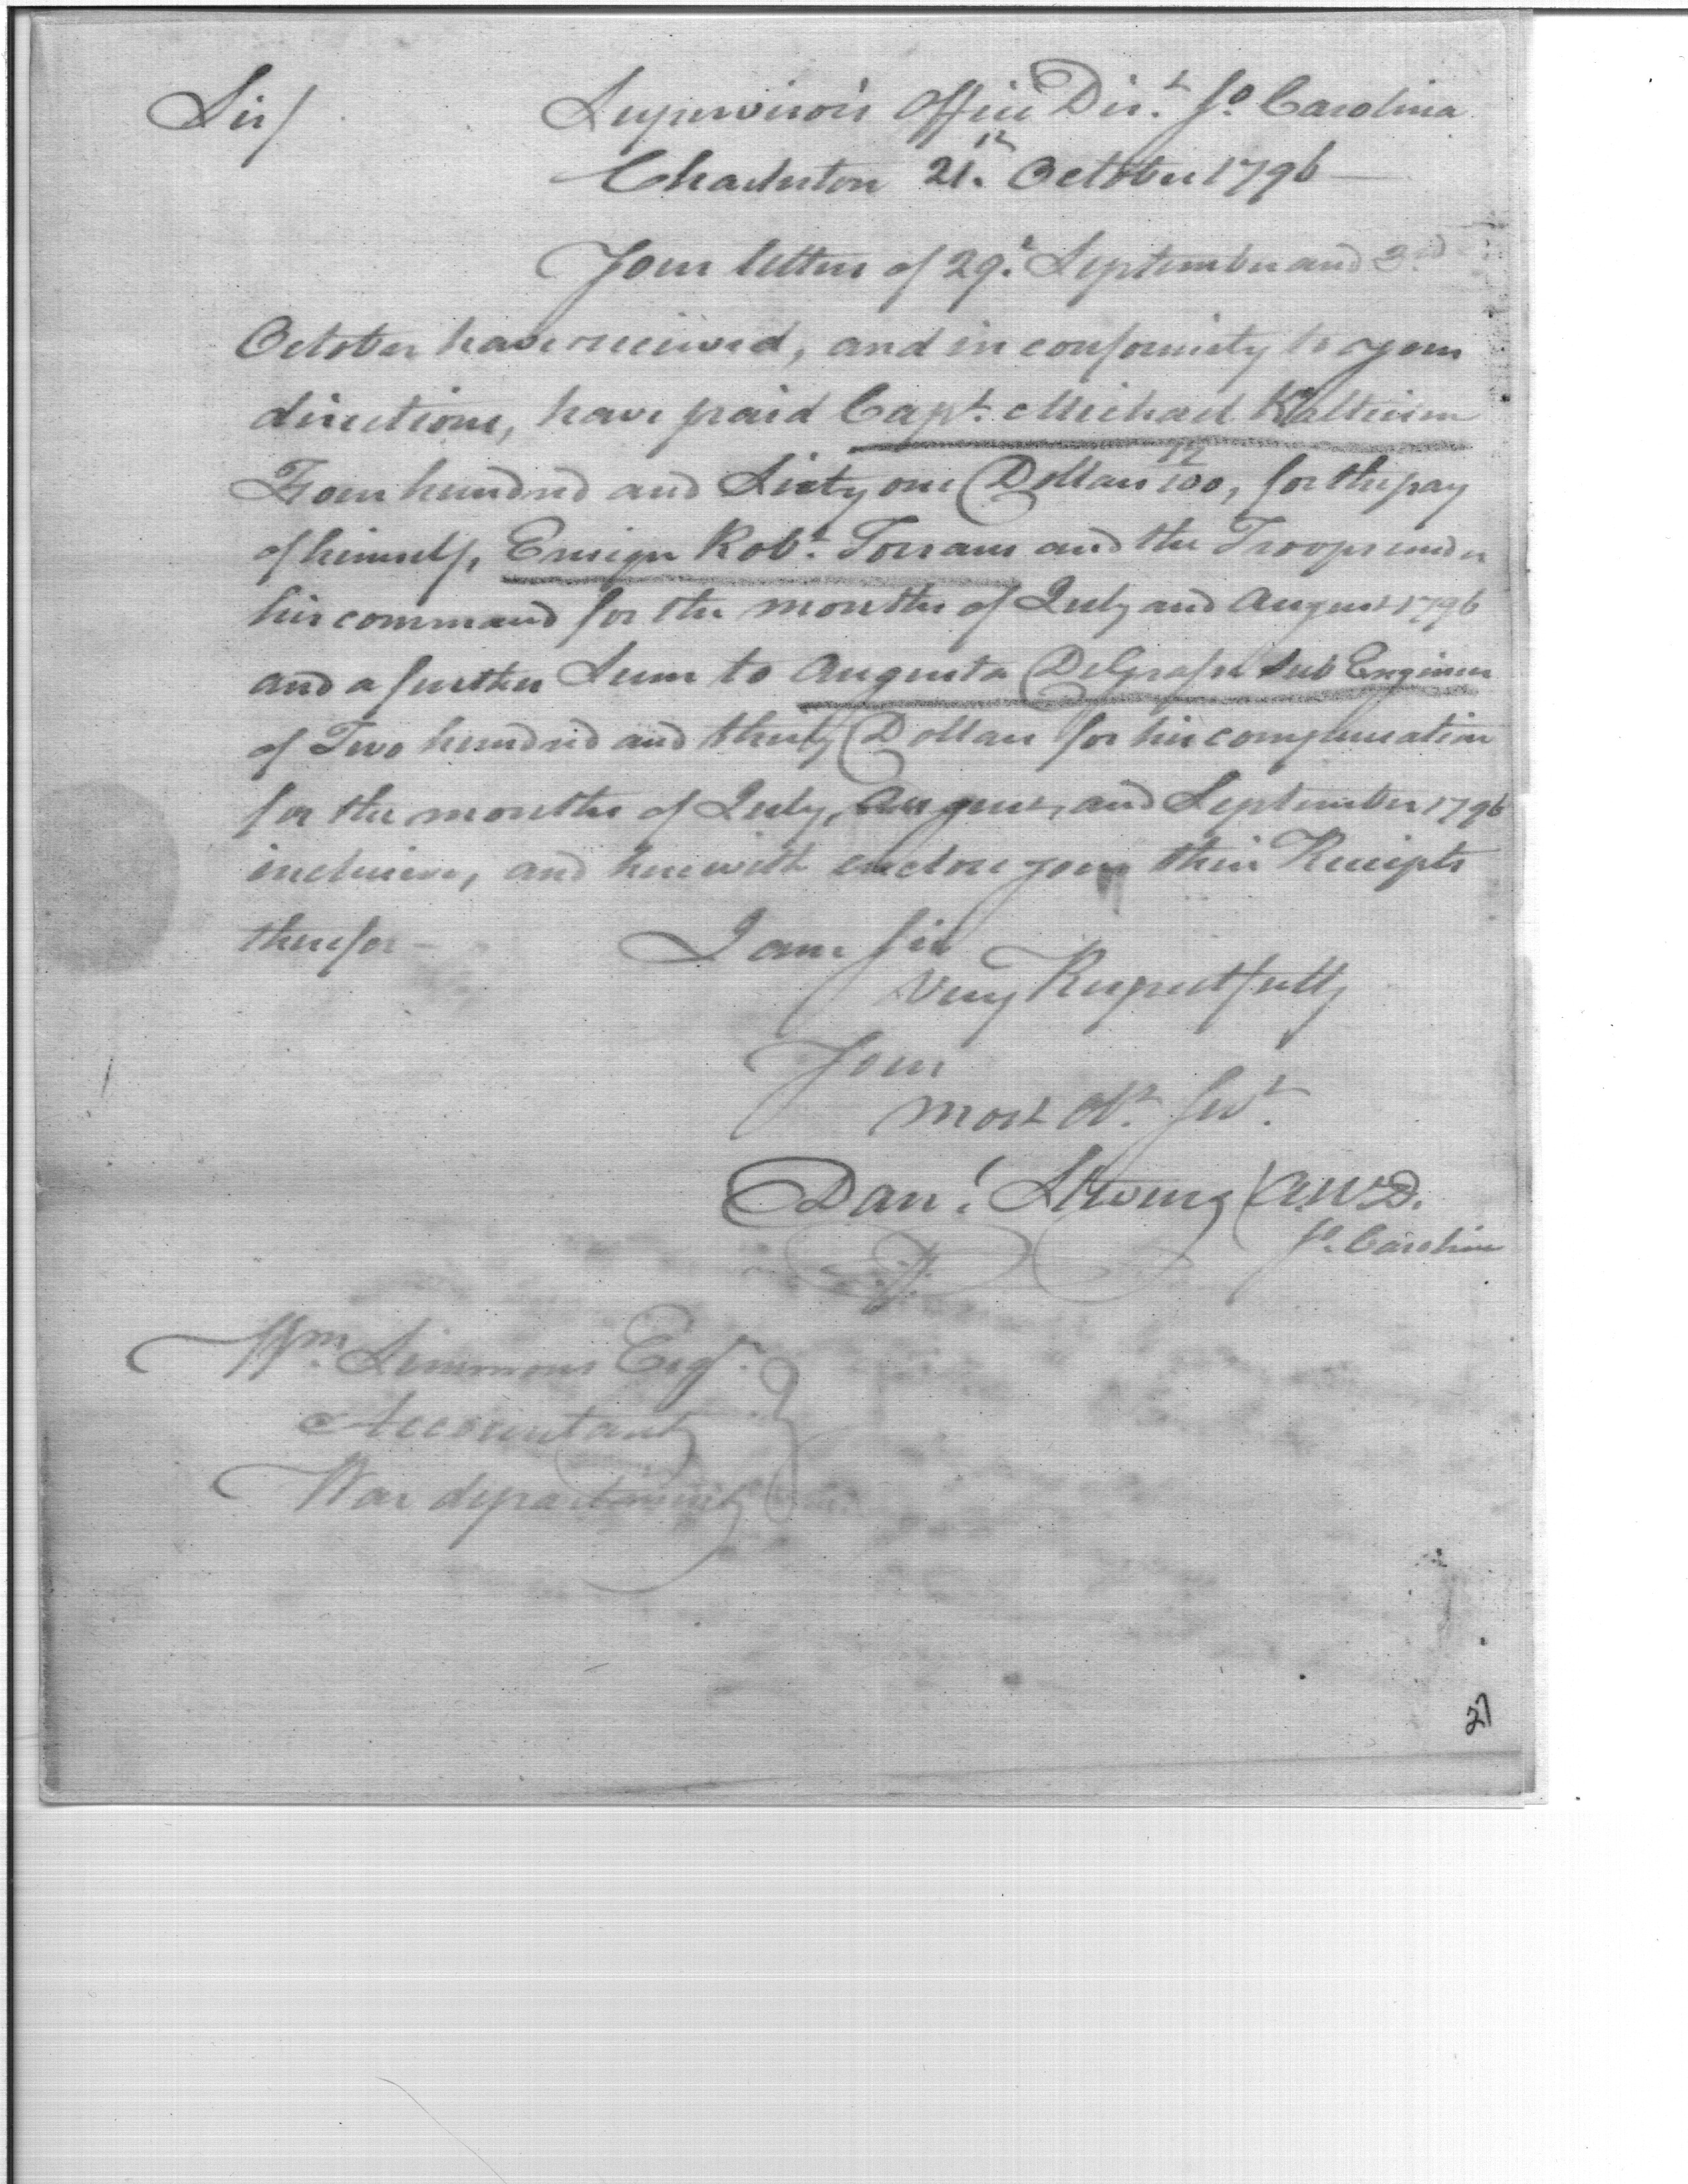 Sir/
Supervisor's Office Dist. So. Carolina
Charleston 21st. October 1796 —
Your letters of 29th. September and 3rd
October have received, and in conformity to your
directions, have paid Capt. Michael Kalteisen
Four hundred and Sixty one Dollars 12/100, for the pay
of himself, Ensign Robt. Torrans and the Troops under
his command for the months of July and August 1796
and a further Sum to Augusta DeGrasse Sub Engineer
of Two hundred and thirty Dollars for his compensation
for the months of July, August, and September 1796
inclusive, and herewith enclose you their Receipts
therefor —
I am Sir
Very Respectfully
Your
most Obt. Servt.
Danl. Stevens
So. Carolina
Wm. Simmons Esqr.
Accountant
War department
27